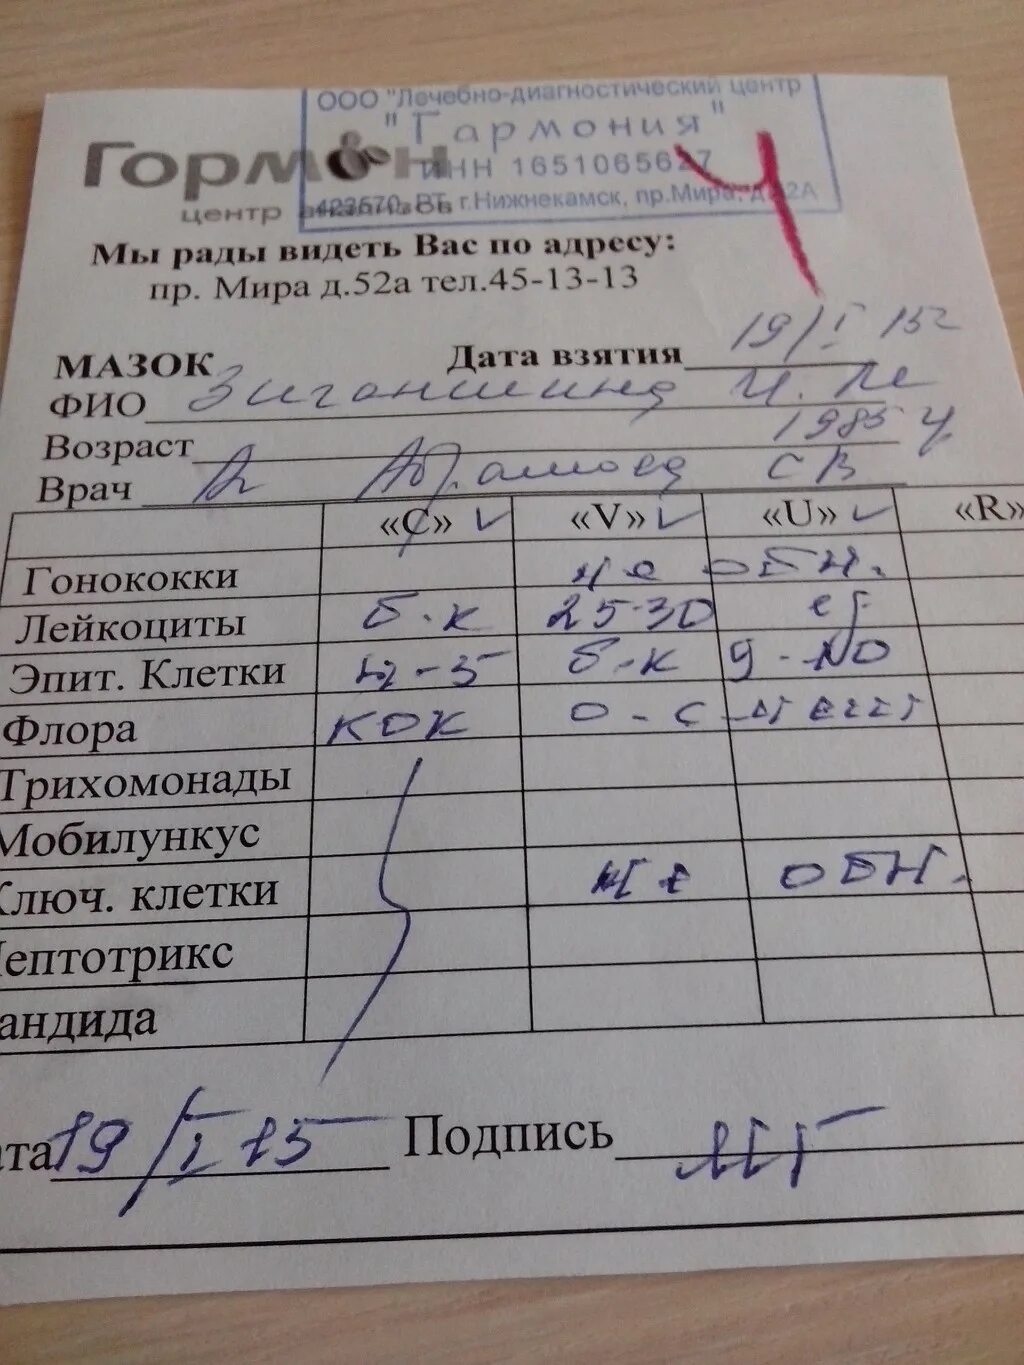 ООО "Лечебно-диагностический центр
"Гармония"
ИНН 1651065627
423570, РТ, г.Нижнекамск, пр.Мира, д.52А
Гормон
центр анализов
Ч
Мы рады видеть Вас по адресу:
пр. Мира д.52а тел.45-13-13
МАЗОК Дата взятия 19/I 15г
ФИО Зиганшина
Возраст 1985
Врач СВ
«C» ✓ «V» ✓ «U» ✓ «R»
Гонококки не обн.
Лейкоциты б-к 25-30 ед
Эпит. Клетки 4-5 б-к 9-10
Флора кок
Трихомонады
Мобилункус
Ключ. клетки не обн.
Лептотрикс
андида
ата 19/I 15 Подпись